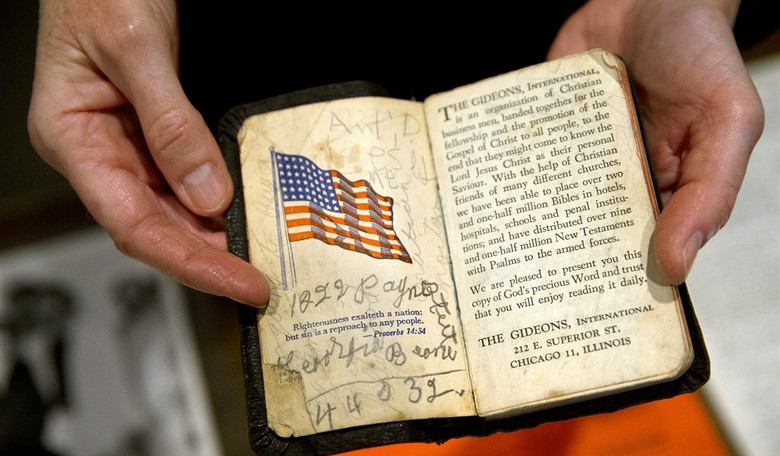 1822 Payne
Righteousness exalteth a nation:
but sin is a reproach to any people.
—Proverbs 14:34
44532
THE GIDEONS, INTERNATIONAL,
is an organization of Christian
business men, banded together for the
fellowship and the promotion of the
Gospel of Christ to all people, to the
end that they might come to know the
Lord Jesus Christ as their personal
Saviour. With the help of Christian
friends of many different churches,
we have been able to place over two
and one-half million Bibles in hotels,
hospitals, schools and penal institu-
tions; and have distributed over nine
and one-half million New Testaments
with Psalms to the armed forces.
We are pleased to present you this
copy of God's precious Word and trust
that you will enjoy reading it daily.
THE GIDEONS, INTERNATIONAL
212 E. SUPERIOR ST.
CHICAGO 11, ILLINOIS